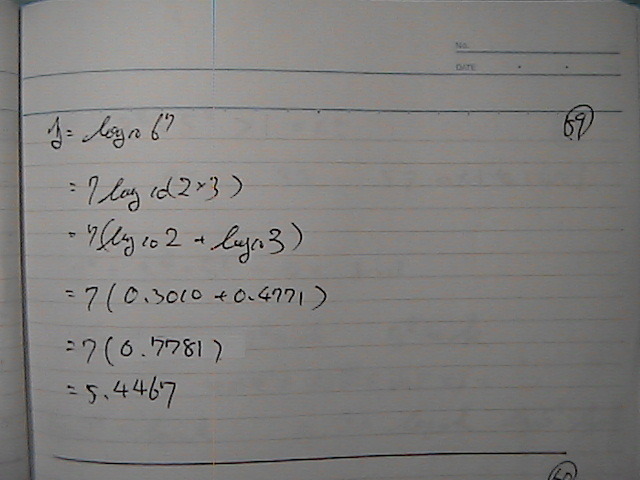 No.
DATE
y = log₁₀ 6⁷
69
= 7 log₁₀(2×3)
= 7(log₁₀ 2 + log₁₀ 3)
= 7(0.3010 + 0.4771)
= 7(0.7781)
= 5.4467